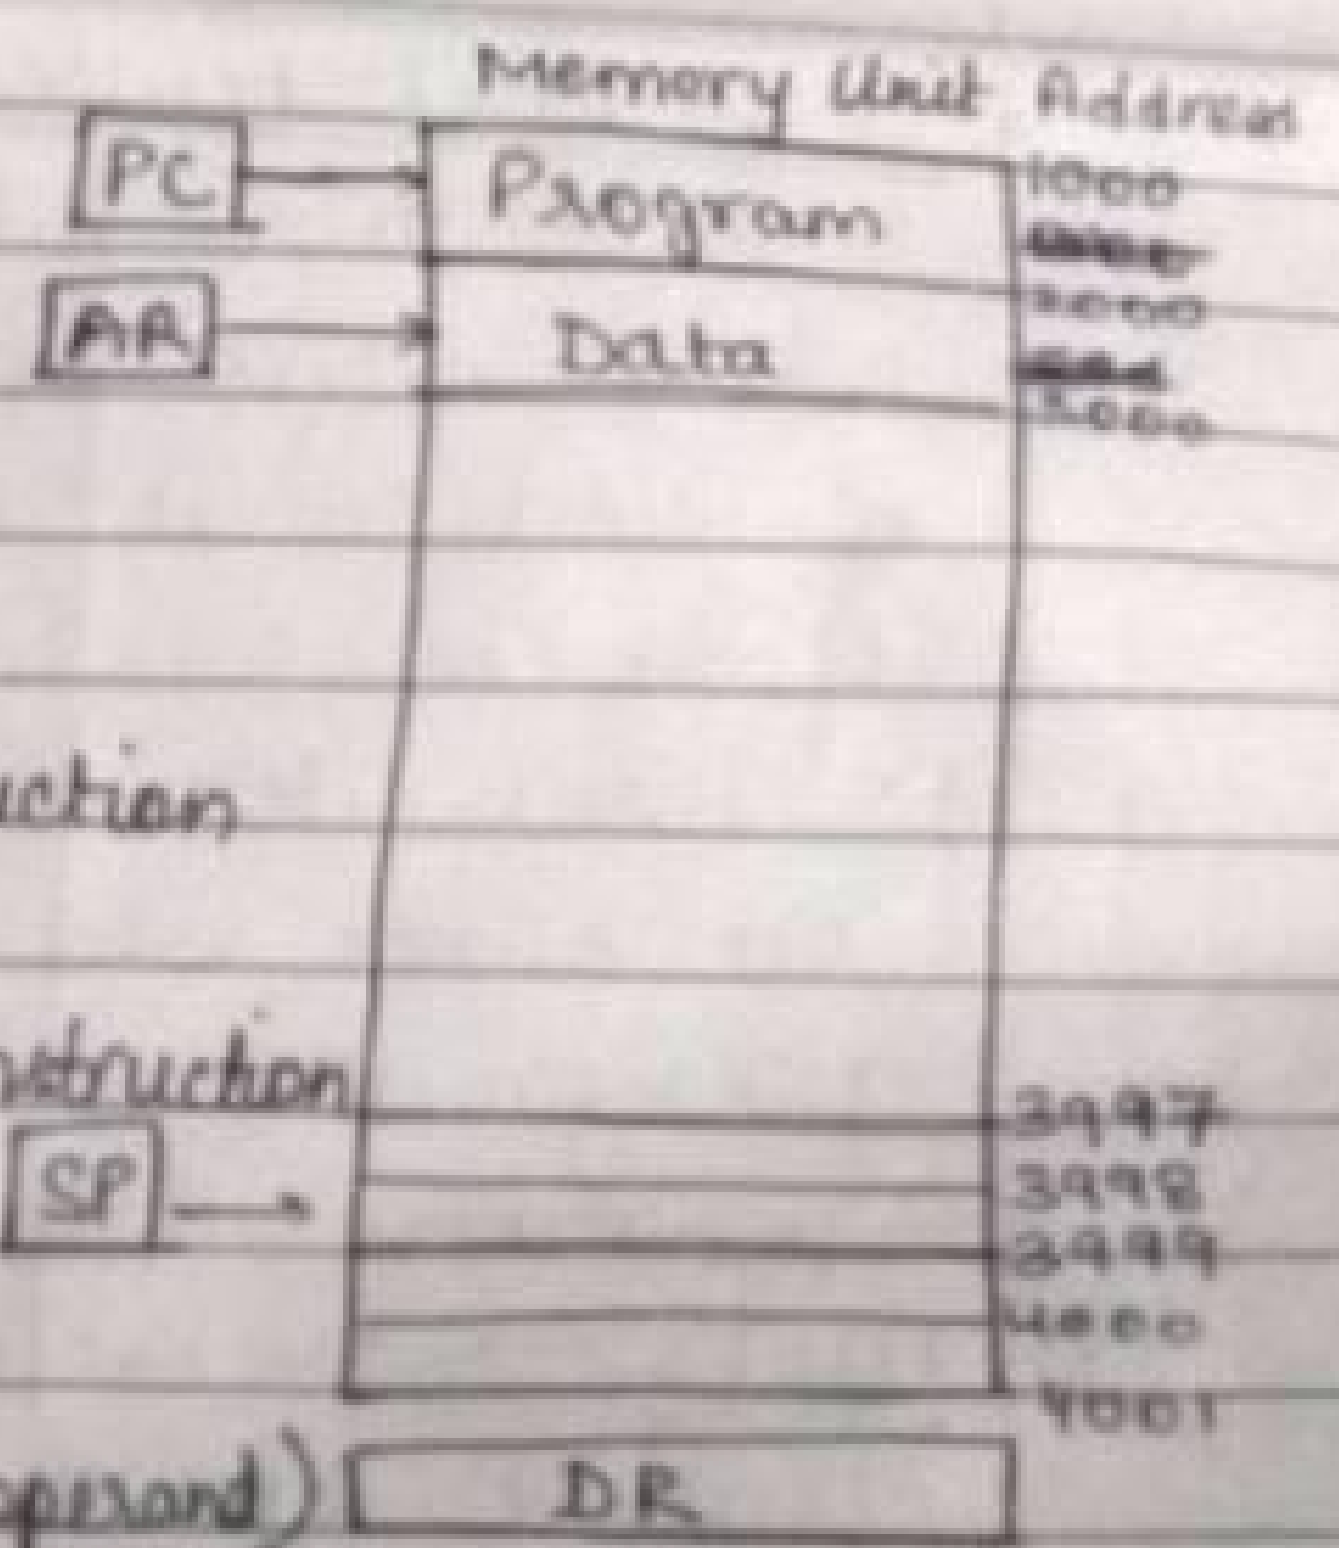 Memory Unit Address
PC
Program
1000
2000
AR
Data
3000
uction
nstruction
3997
SP
3998
3999
4000
4001
operand)
DR